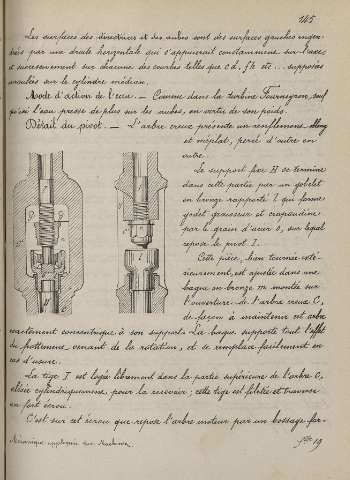 145
Les surfaces des directrices et des aubes sont des surfaces gauches engen-
drées par une droite horizontale qui s'appuierait constamment sur l'axe
et successivement sur chacune des courbes telles que cd, fh etc... supposées
enroulées sur le cylindre médian.
Mode d'action de l'eau. — Comme dans la turbine Fourneyron, sauf
qu'ici l'eau presse de plus sur les aubes, en vertu de son poids.
Détail du pivot. — L'arbre creux présente un renflement oblong
et méplat, percé d'outre en
outre.
Le support fixe H se termine
dans cette partie par un gobelet
en bronze rapporté l qui forme
godet graisseur et crapaudine
par le grain d'acier o, sur lequel
repose le pivot I.
Cette pièce, bien tournée exté-
rieurement, est ajustée dans une
bague en bronze m montée sur
l'ouverture de l'arbre creux C,
de façon à maintenir cet arbre
exactement concentrique à son support. La bague supporte tout l'effet
du frottement venant de la rotation, et se remplace facilement en
cas d'usure.
La tige I est logée librement dans la partie supérieure de l'arbre C,
alésée cylindriquement, pour la recevoir; cette tige est filetée et traverse
un fort écrou.
C'est sur cet écrou que repose l'arbre moteur par un bossage for-
Mécanique appliquée aux Machines
19